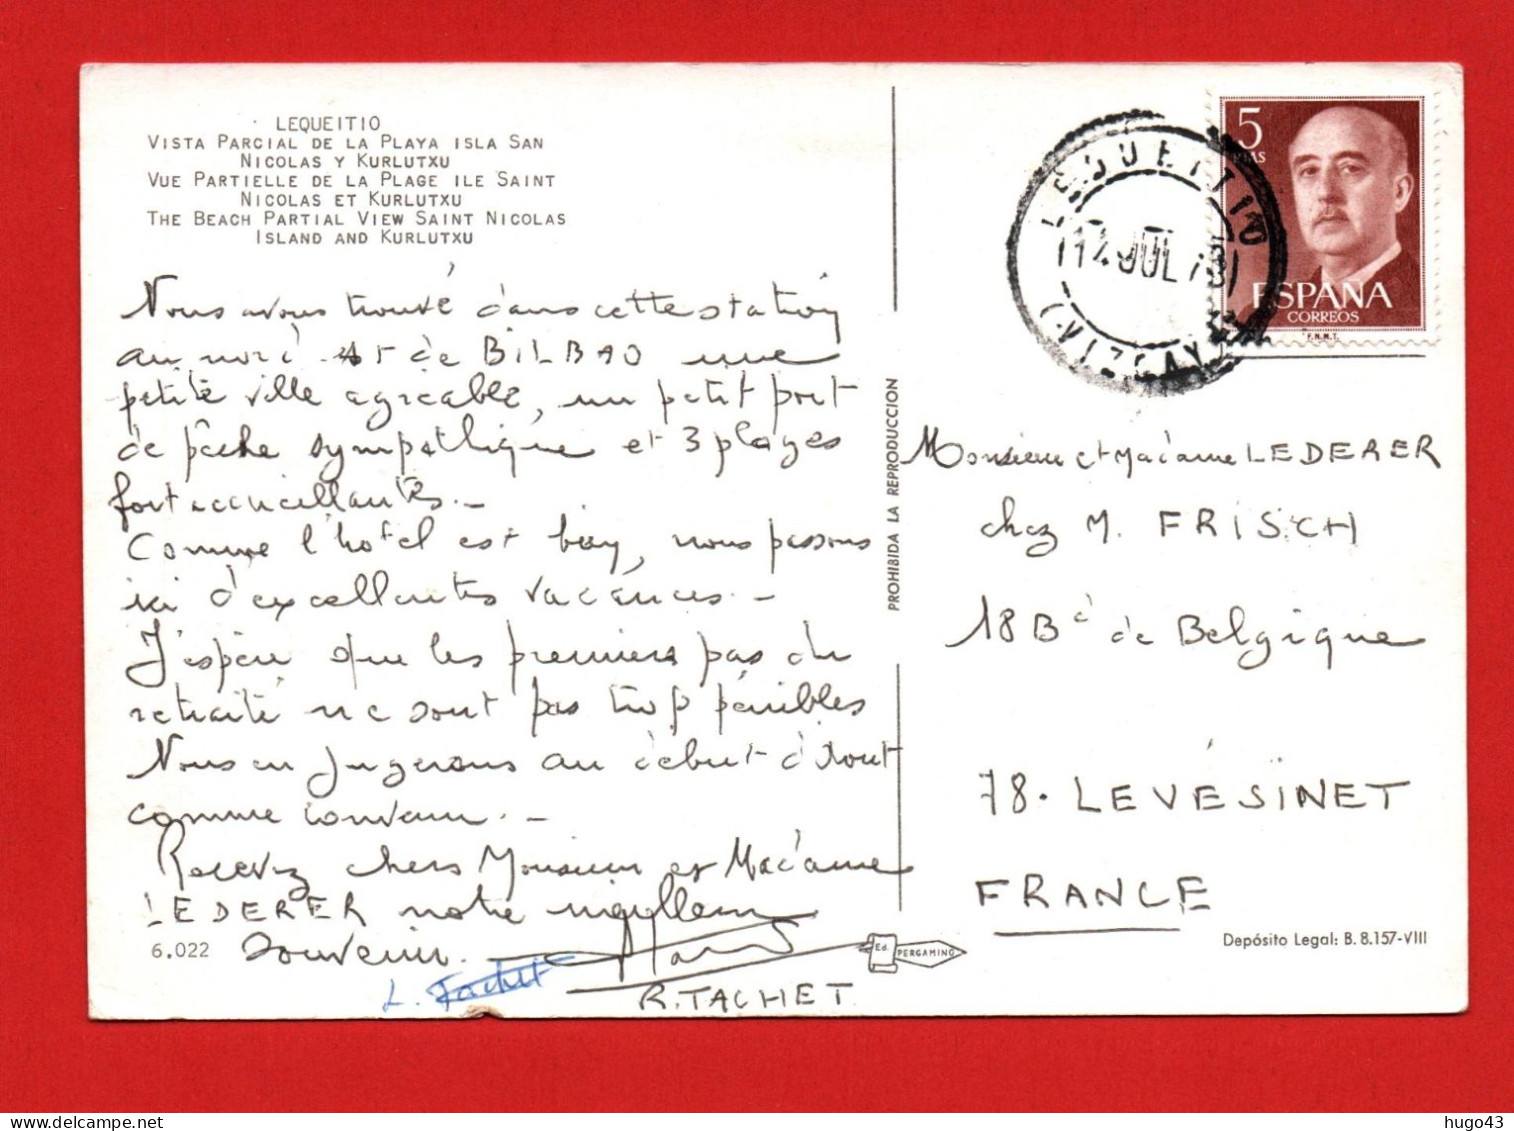 LEQUEITIO
VISTA PARCIAL DE LA PLAYA ISLA SAN
NICOLAS Y KURLUTXU
VUE PARTIELLE DE LA PLAGE ILE SAINT
NICOLAS ET KURLUTXU
THE BEACH PARTIAL VIEW SAINT NICOLAS
ISLAND AND KURLUTXU
Nous avons trouvé dans cette station
au nord Est de BILBAO une
petite ville agréable, un petit port
de pêche sympathique et 3 plages
fort accueillantes.-
Comme l'hotel est bien, nous passons
ici d'excellentes vacances.-
J'espère que les premiers pas du
retraité ne sont pas trop pénibles
Nous en jugerons au début d'Aout
comme convenu.-
Recevez chers Monsieur et Madame
LEDERER notre meilleur
souvenir.
L. Tachet
R. TACHET
6.022
Ed. PERGAMINO
PROHIBIDA LA REPRODUCCION
LEQUEITIO
14 JUL 73
(VIZCAYA)
5
PTAS
ESPAÑA
CORREOS
F.N.M.T.
Monsieur et Madame LEDERER
chez M. FRISCH
18 Bd de Belgique
78. LE VÉSINET
FRANCE
Depósito Legal: B. 8.157-VIII
hugo43